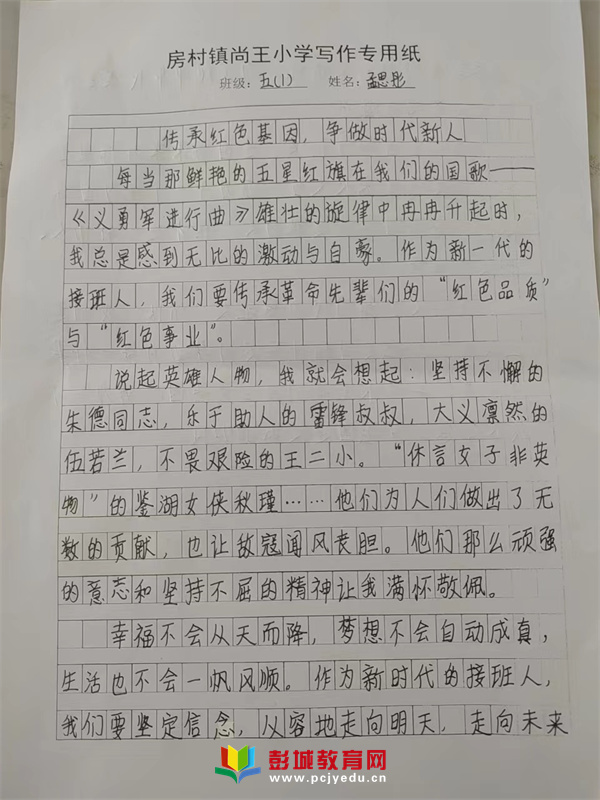 房村镇尚王小学写作专用纸
班级：五(1) 姓名：孟思彤
传承红色基因，争做时代新人
每当那鲜艳的五星红旗在我们的国歌——
《义勇军进行曲》雄壮的旋律中冉冉升起时，
我总是感到无比的激动与自豪。作为新一代的
接班人，我们要传承革命先辈们的“红色品质”
与“红色事业”。
说起英雄人物，我就会想起：坚持不懈的
朱德同志，乐于助人的雷锋叔叔，大义凛然的
伍若兰，不畏艰险的王二小。“休言女子非英
物”的鉴湖女侠秋瑾……他们为人们做出了无
数的贡献，也让敌寇闻风丧胆。他们那么顽强
的意志和坚持不屈的精神让我满怀敬佩。
幸福不会从天而降，梦想不会自动成真，
生活也不会一帆风顺。作为新时代的接班人，
我们要坚定信念，从容地走向明天，走向未来
彭城教育网
www.pcjyedu.cn